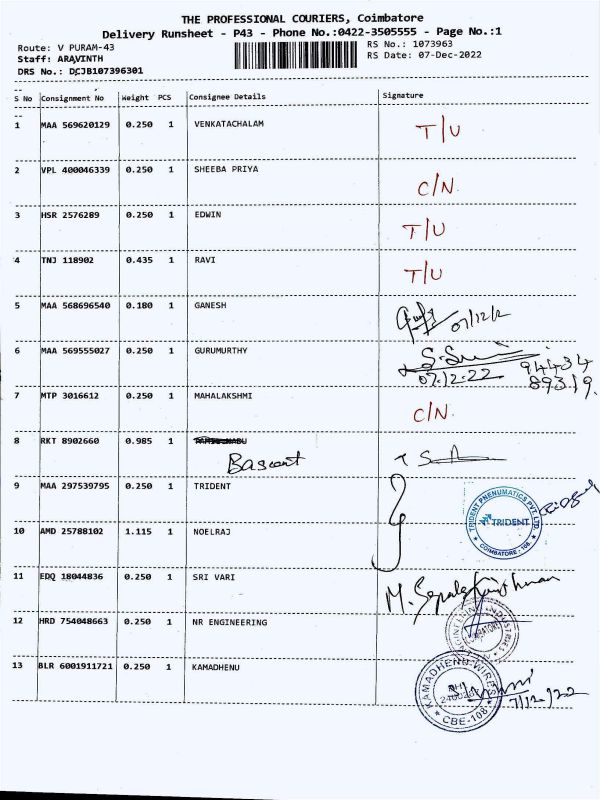 THE PROFESSIONAL COURIERS, Coimbatore
Delivery Runsheet - P43 - Phone No.:0422-3505555 - Page No.:1
Route: V PURAM-43 RS No.: 1073963
Staff: ARAVINTH RS Date: 07-Dec-2022
DRS No.: DCJB107396301
S No Consignment No Weight PCS Consignee Details Signature
1 MAA 569620129 0.250 1 VENKATACHALAM T/U
2 VPL 400046339 0.250 1 SHEEBA PRIYA C/N.
3 HSR 2576289 0.250 1 EDWIN T/U
4 TNJ 118902 0.435 1 RAVI T/U
5 MAA 568696540 0.180 1 GANESH
6 MAA 569555027 0.250 1 GURUMURTHY 94434
07.12.22 89319.
7 MTP 3016612 0.250 1 MAHALAKSHMI C/N.
8 RKT 8902660 0.985 1
9 MAA 297539795 0.250 1 TRIDENT
TRIDENT PNEUMATICS PVT. LTD.
TRIDENT
COIMBATORE - 108.
10 AMD 25788102 1.115 1 NOELRAJ
11 EDQ 18044836 0.250 1 SRI VARI
12 HRD 754048663 0.250 1 NR ENGINEERING
13 BLR 6001911721 0.250 1 KAMADHENU
KAMADHENU WIRES
CBE-108
7/12/22